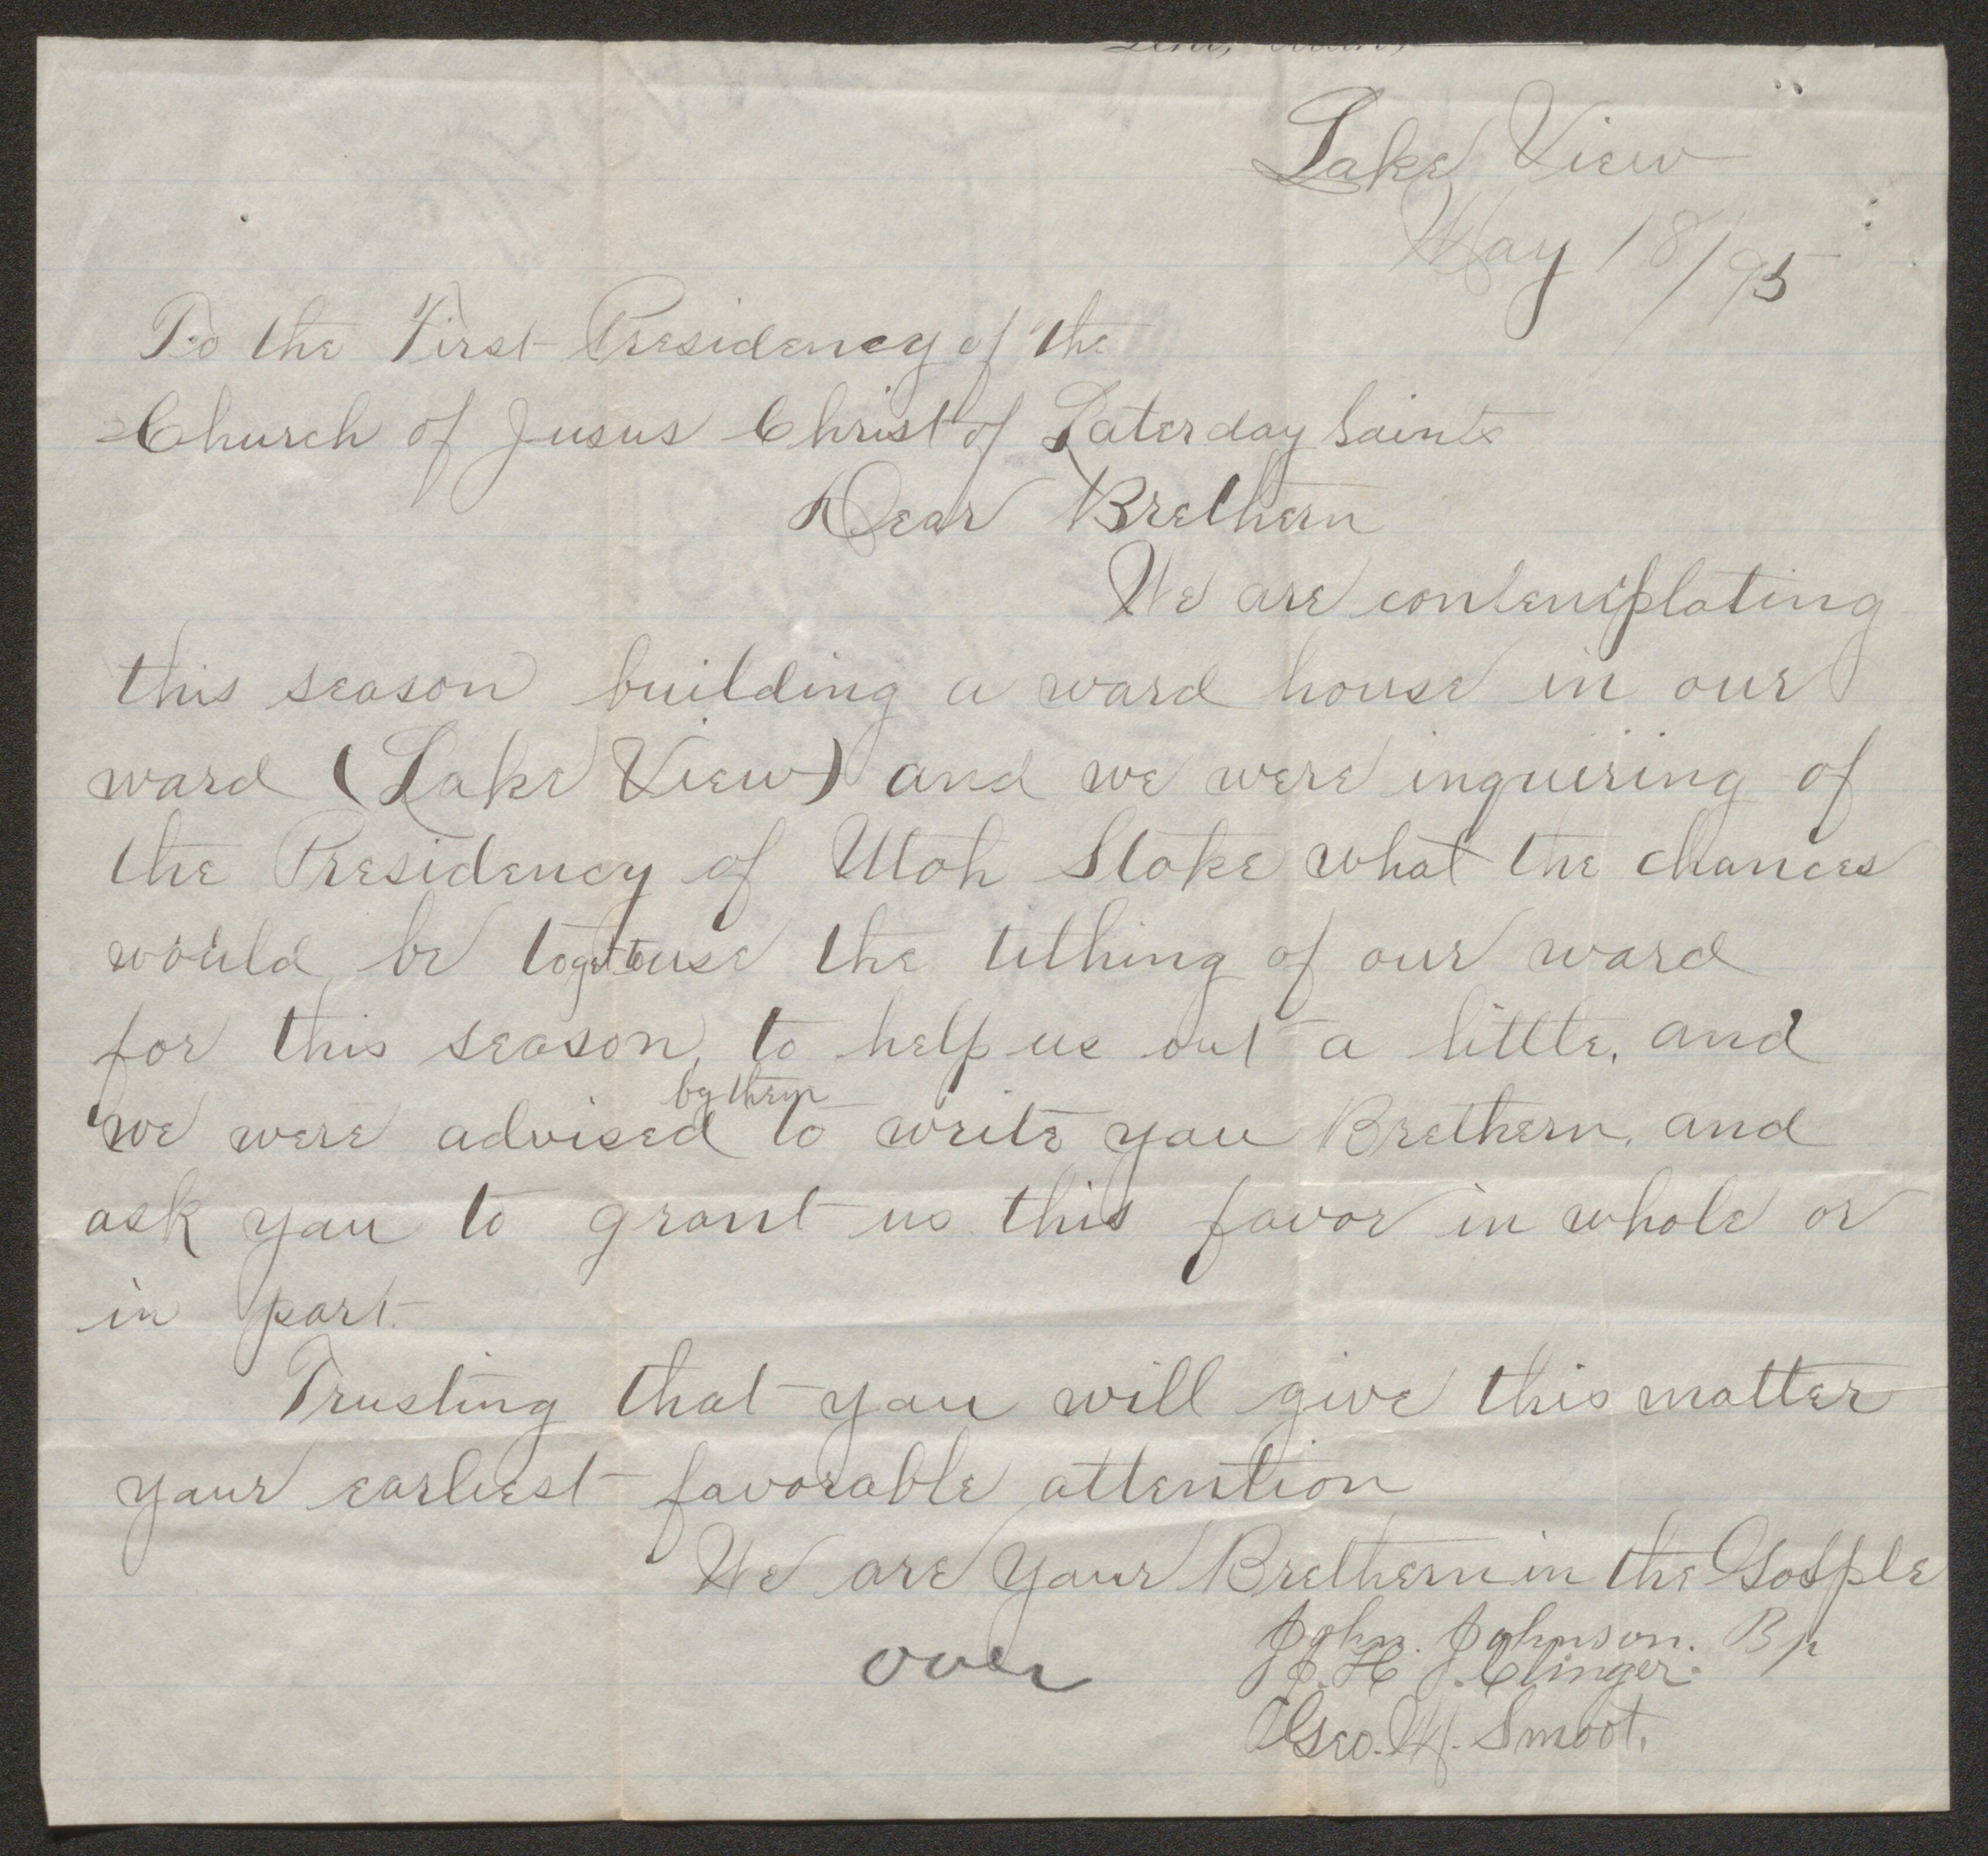 Lake View
May 18/95
To the First Presidency of the
Church of Jusus Christ of Laterday Saints
Dear Brethern
We are contemplating
this season building a ward house in our
ward (Lake View) and we were inquiring of
the Presidency of Utah Stake what the chances
would be to get to use the tithing of our ward
for this season, to help us out a little, and
by them
we were advised to write you Brethern, and
ask you to grant us this favor in whole or
in part.
Trusting that you will give this matter
your earliest favorable attention
We are your Brethern in the Gosple
John. Johnson. Bp
over
J. H. J. Clinger.
Geo. M. Smoot.